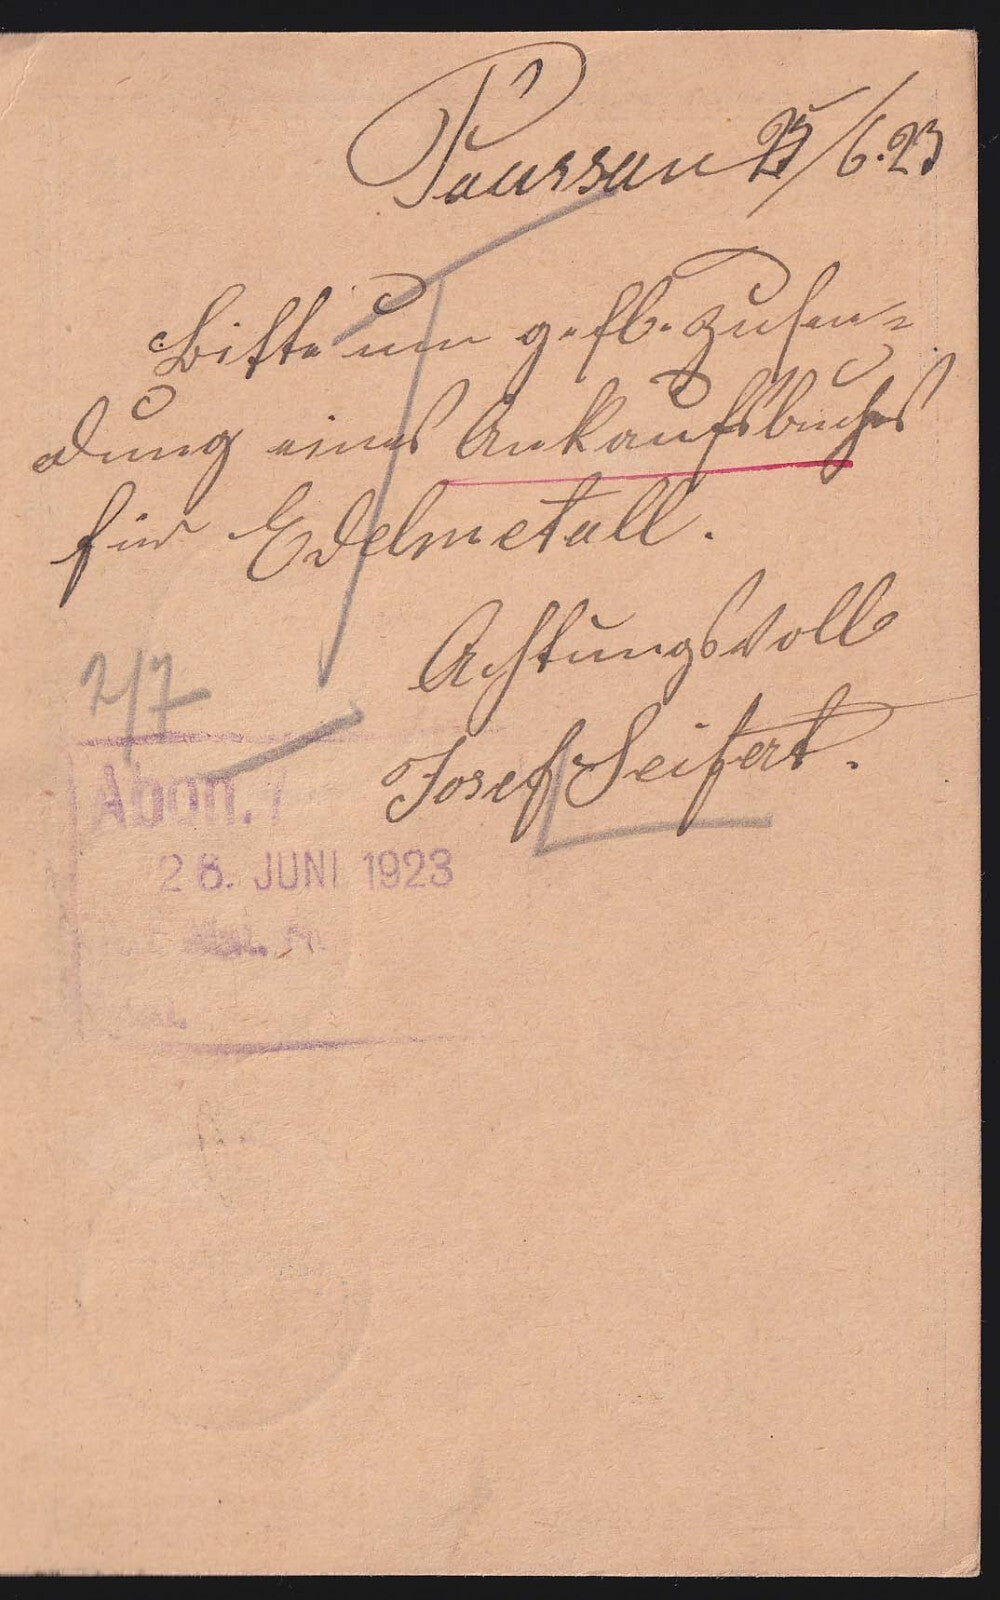 25/6.23
Bitte um gefl. Zusen=
dung eines Ankaufsbuches
für Edelmetall.
Achtungsvoll
Josef Seifert.
2/7
Abon.
28. JUNI 1923